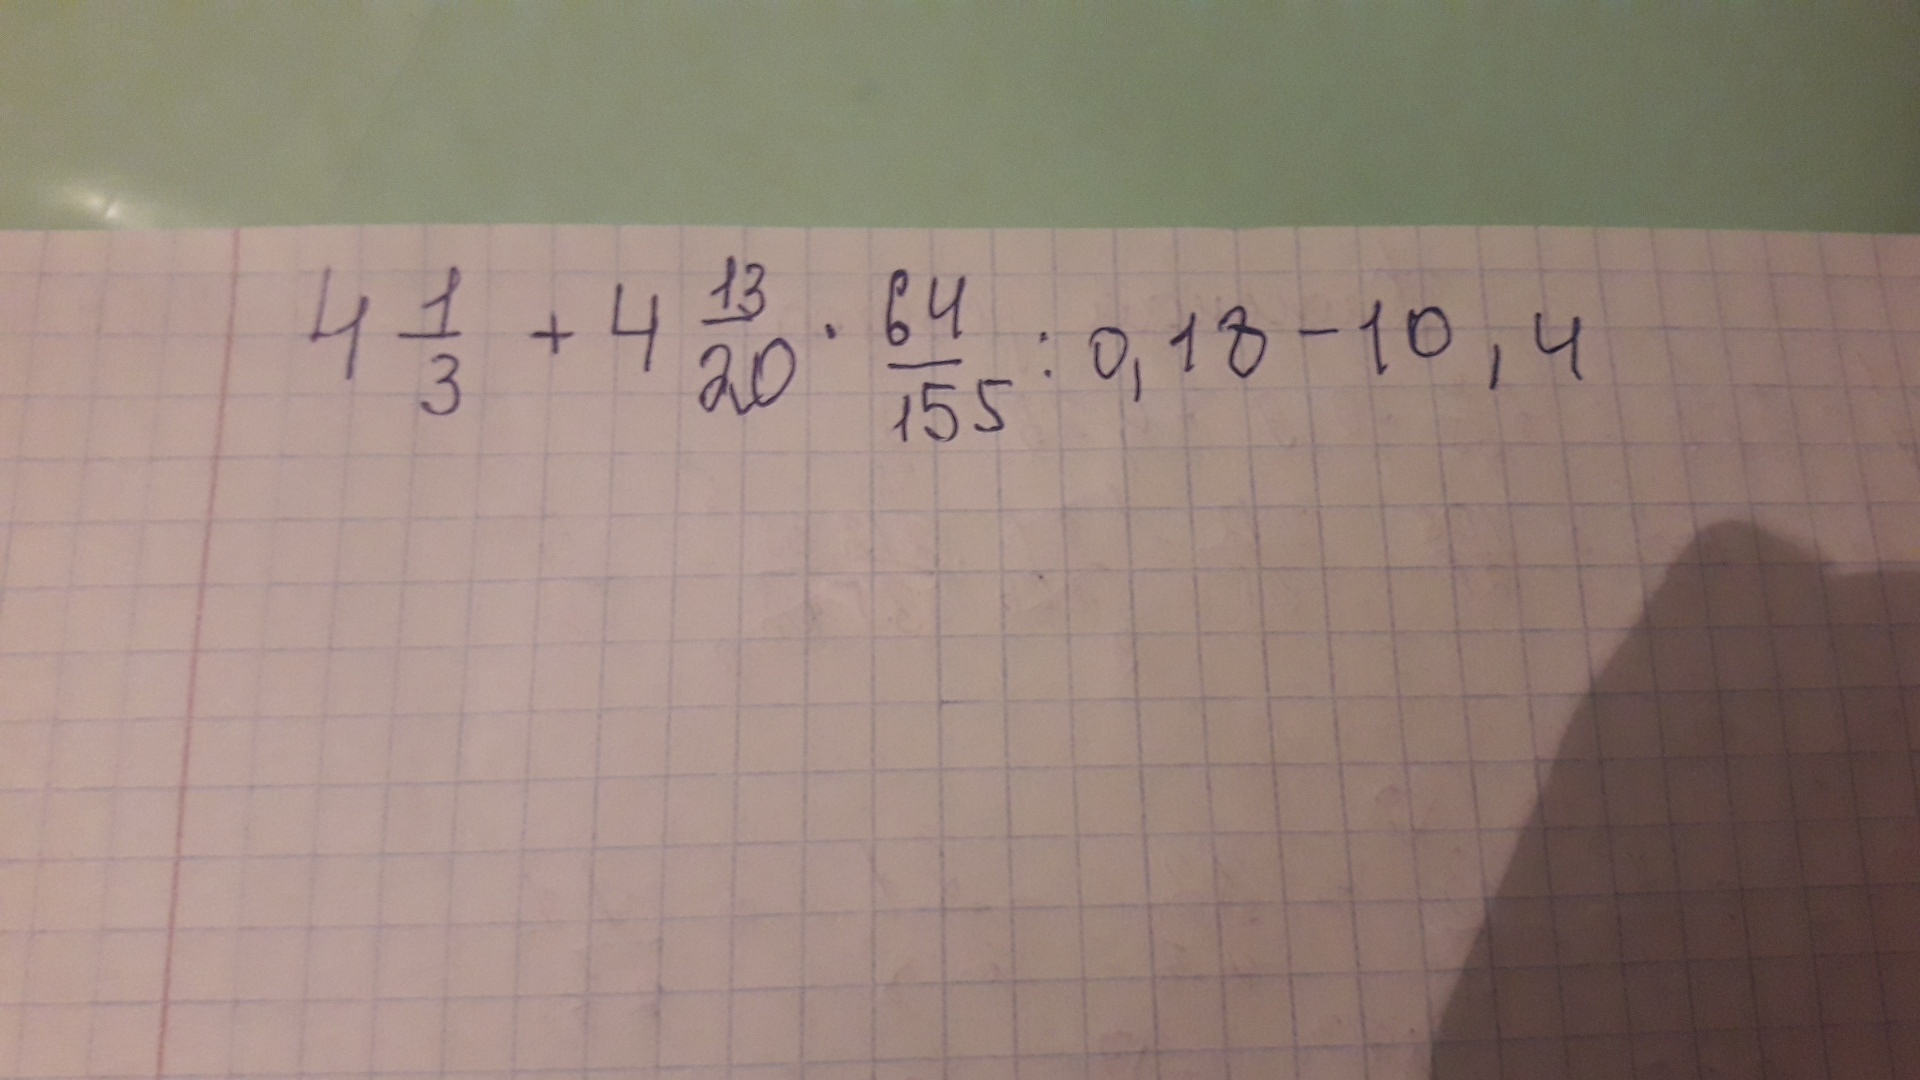 4 1/3 + 4 13/20 · 64/155 : 0,18 - 10,4